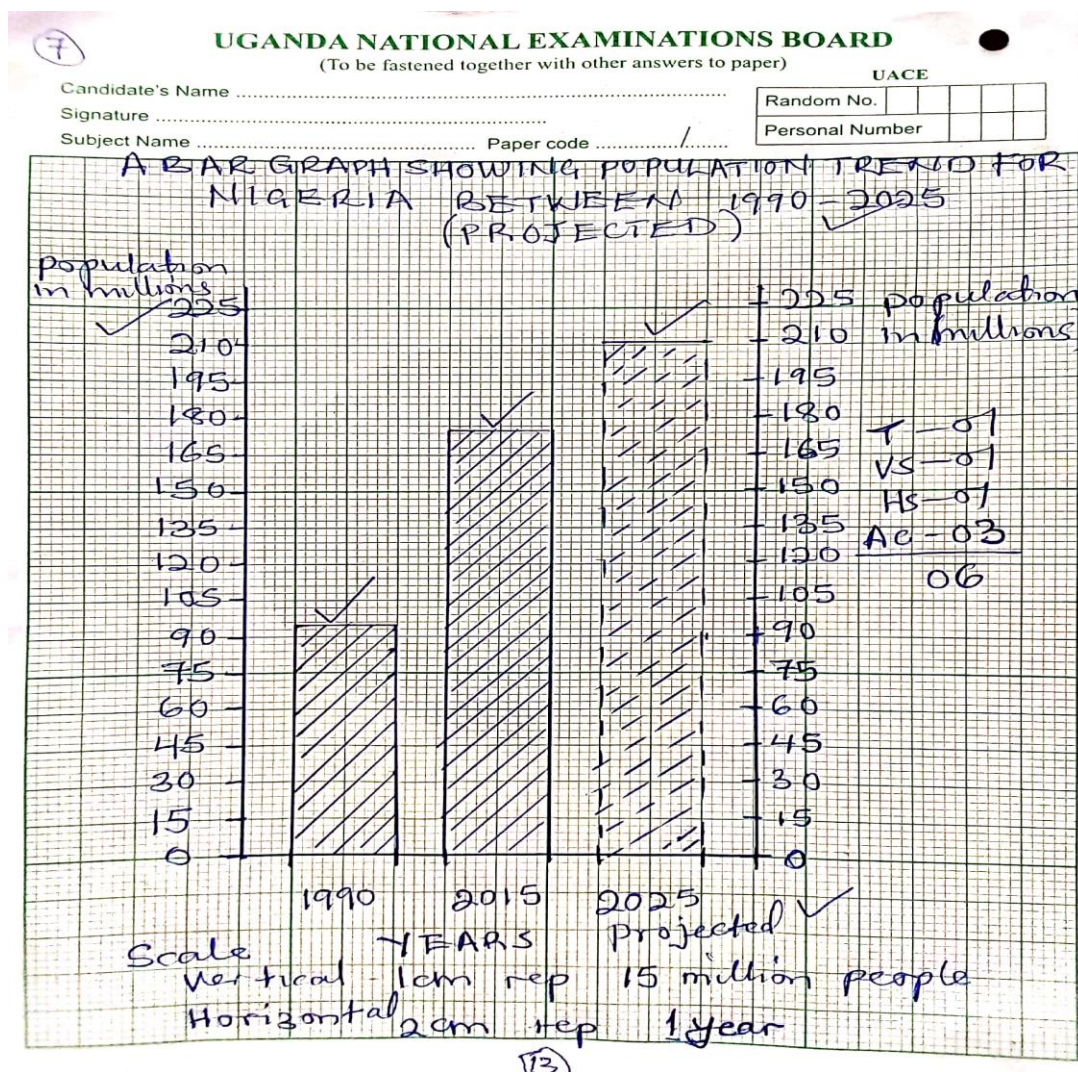 7
UGANDA NATIONAL EXAMINATIONS BOARD
(To be fastened together with other answers to paper)
UACE
Candidate's Name
Random No.
Signature
Personal Number
Subject Name Paper code /
A BAR GRAPH SHOWING POPULATION TREND FOR
NIGERIA BETWEEN 1990 - 2025
(PROJECTED)
population
in millions
225
210
195
180
165
150
135
120
105
90
75
60
45
30
15
0
225 population
210 in millions
195
180
165
150
135
120
105
90
75
60
45
30
15
0
T - 01
VS - 01
HS - 01
AC - 03
06
1990 2015 2025
projected
YEARS
Scale
Vertical 1cm rep 15 million people
Horizontal 2cm rep 1 year
13